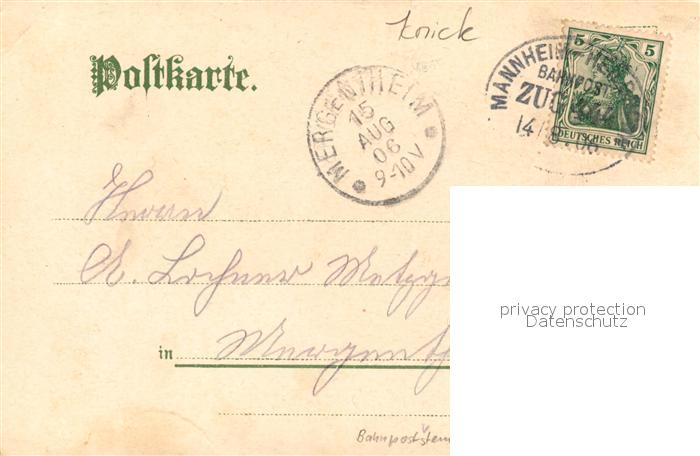 knick
Postkarte.
MERGENTHEIM
15
AUG
06
9-10 V
MANNHEIM
BAHNPOST
ZUG
14
5 5
DEUTSCHES REICH
Herrn
A. Lochner Metzge
in Mergenth
privacy protection
Datenschutz
Bahnpoststem